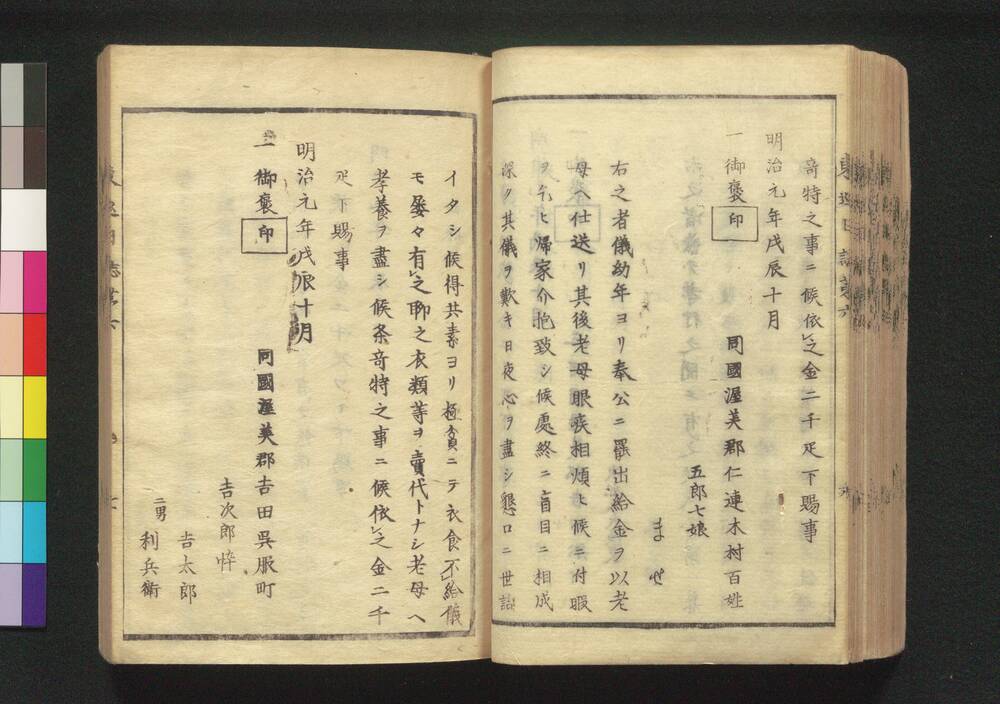 奇特之事ニ候依之金二千疋下賜事
明治元年戊辰十月
一 御褒 印 同國渥美郡仁連木村百姓
五郎七娘
ませ
右之者儀幼年ヨリ奉公ニ罷出給金ヲ以老
母仕送リ其後老母眼疾相煩ヒ候ニ付暇
ヲ乞ヒ帰家介抱致シ候處終ニ盲目ニ相成
深ク其儀ヲ歎キ日夜心ヲ盡シ懇ロニ世話
イタシ候得共素ヨリ極貧ニテ衣食不給儀
モ屡々有之聊之衣類等ヲ賣代トナシ老母ヘ
孝養ヲ盡シ候条奇特之事ニ候依之金二千
疋下賜事
明治元年戊辰十月
一 御褒 印 同國渥美郡吉田呉服町
吉次郎悴
吉太郎
二男 利兵衛